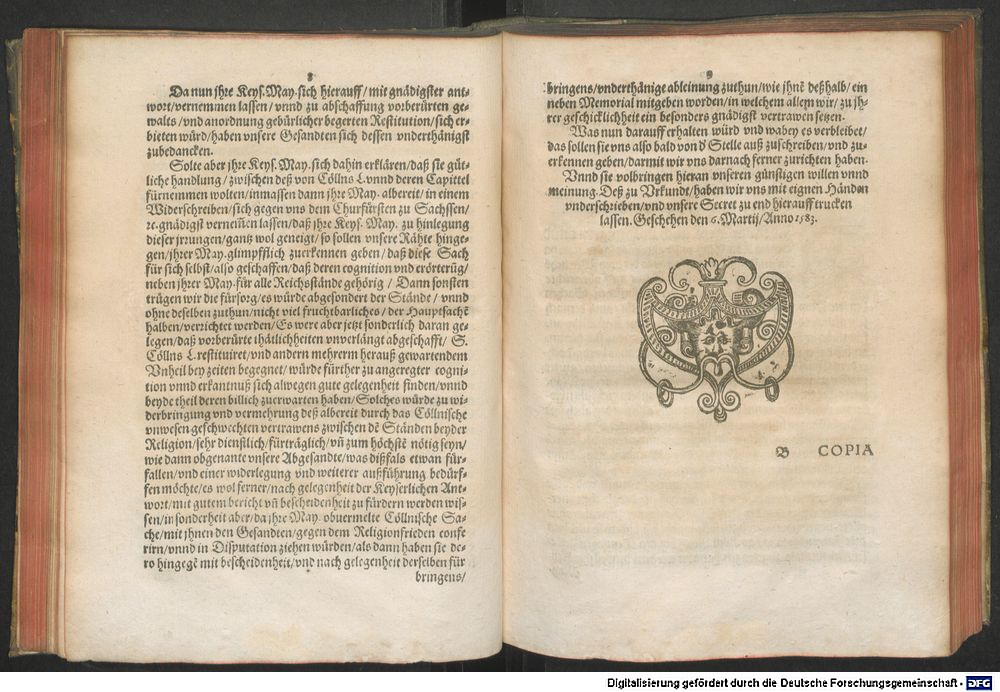 8
Da nun jhre Keys. May. sich hierauff / mit gnädigster ant-
wort / vernemmen lassen / vnnd zu abschaffung vorberürten ge-
walts / vnd anordnung gebürlicher begerten Restitution / sich er-
bieten würd / haben vnsere Gesandten sich dessen vnderthänigst
zubedancken.
Solte aber jhre Keys. May. sich dahin erklären / daß sie güt-
liche handlung / zwischen deß von Cöllns L. vnnd deren Capittel
fürnemmen wolten / inmassen dann jhre May. albereit / in einem
Widerschreiben / sich gegen vns dem Churfürsten zu Sachssen /
rc. gnädigst vernem̃en lassen / daß jhre Keys. May. zu hinlegung
dieser jrrungen / gantz wol geneigt / so sollen vnsere Rähte hinge-
gen / jhrer May. glimpfflich zuerkennen geben / daß diese Sach
für sich selbst / also geschaffen / daß deren cognition vnd erörterũg /
neben jhrer May. für alle Reichsstände gehörig / Dann sonsten
trügen wir die fürsorg / es würde abgesondert der Stände / vnnd
ohne deselben zuthun / nicht viel fruchtbarliches / der Hauptsachẽ
halben / verzichtet werden / Es were aber jetzt sonderlich daran ge-
legen / daß vorberürte thätlichheiten vnverlängt abgeschafft / S.
Cöllns L. restituiret / vnd andern mehrerm herauß gewartendem
Vnheil bey zeiten begegnet / würde fürther zu angeregter cogni-
tion vnnd erkantnuß sich alwegen gute gelegenheit finden / vnnd
beyde theil deren billich zuerwarten haben / Solches würde zu wi-
derbringung vnd vermehrung deß albereit durch das Cöllnische
vnwesen geschwechten vertrawens zwischen dẽ Ständen beyder
Religion / sehr dienstlich / fürträglich / vñ zum höchstẽ nötig seyn /
wie dann obgenante vnsere Abgesandte / was dißfals etwan für-
fallen / vnd einer widerlegung vnd weiterer außführung bedürf-
fen möchte / es wol ferner / nach gelegenheit der Keyserlichen Ant-
wort / mit gutem bericht vñ bescheidenheit zu fürdern werden wis-
sen / in sonderheit aber / da jhre May. obuermelte Cöllnische Sa-
che / mit jhnen den Gesandten / gegen dem Religionfrieden confe
rirn / vnnd in Disputation ziehen würden / als dann haben sie de-
ro hingegẽ mit bescheidenheit / vnd nach gelegenheit derselben für
bringens /
9
bringens / vnderthänige ableinung zuthun / wie jhnẽ deßhalb / ein
neben Memorial mitgeben worden / in welchem allem wir / zu jh-
rer geschicklichheit ein besonders gnädigst vertrawen setzen.
Was nun darauff erhalten würd vnd wabey es verbleibet /
das sollen sie vns also bald von d' Stelle auß zuschreiben / vnd zu-
erkennen geben / darmit wir vns darnach ferner zurichten haben.
Vnnd sie volbringen hieran vnseren günstigen willen vnnd
meinung. Deß zu Vrkundt / haben wir vns mit eignen Händen
vnderschrieben / vnd vnsere Secret zu end hierauff trucken
lassen. Geschehen den 6. Martij / Anno 1583.
B COPIA
Digitalisierung gefördert durch die Deutsche Forschungsgemeinschaft - DFG